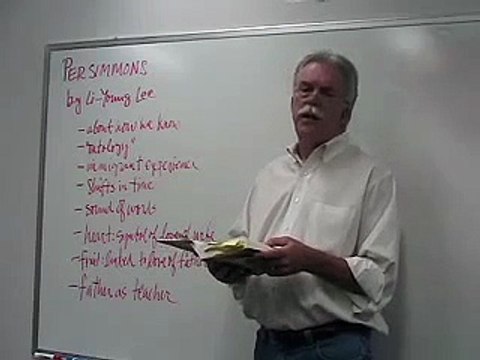 PERSIMMONS
by Li-Young Lee
- about how we know
- "ontology"
- immigrant experience
- shifts in time
- sound of words
- heart: symbol of love
- fruit: linked to love of father
- father as teacher